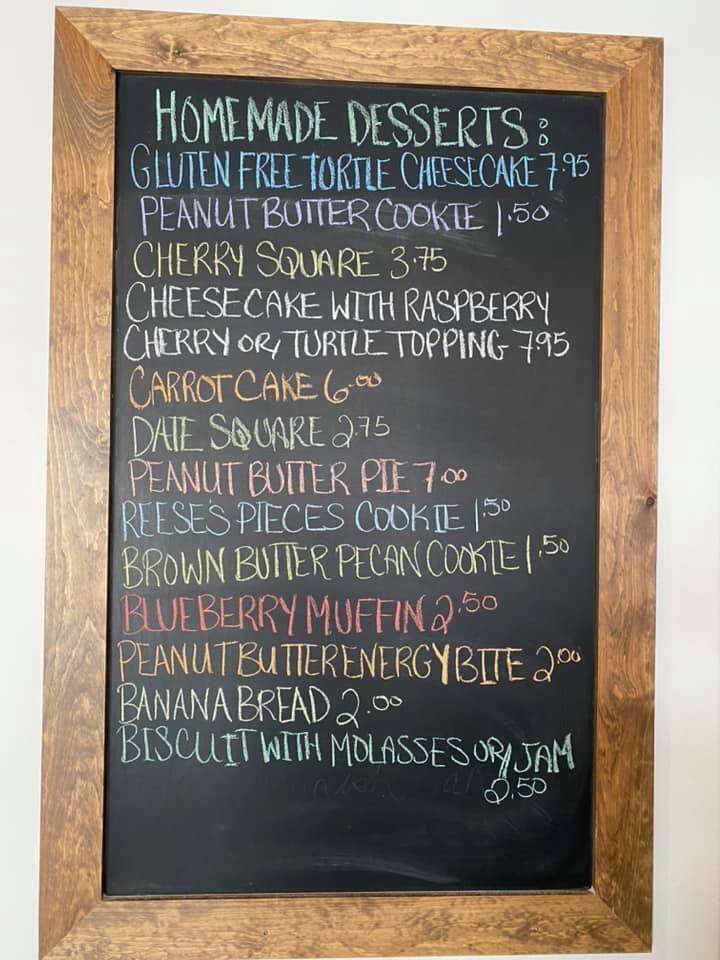 HOMEMADE DESSERTS:
GLUTEN FREE TORTLE CHEESECAKE 7.95
PEANUT BUTTER COOKIE 1.50
CHERRY SQUARE 3.75
CHEESECAKE WITH RASPBERRY
CHERRY OR, TURTLE TOPPING 7.95
CARROT CAKE 6.00
DATE SQUARE 2.75
PEANUT BUTTER PIE 7.00
REESE'S PIECES COOKIE 1.50
BROWN BUTTER PECAN COOKIE 1.50
BLUEBERRY MUFFIN 2.50
PEANUT BUTTER ENERGY BITE 2.00
BANANA BREAD 2.00
BISCUIT WITH MOLASSES OR/ JAM
2.50